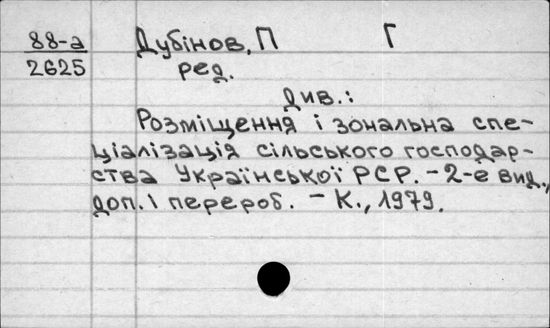 88-а Дубінов, П Г
2625 ред.
див.:
Розміщення і зональна спе-
ціалізація сільського господар-
ства Української РСР. - 2-е вид.,
доп. і перероб. - К., 1979.